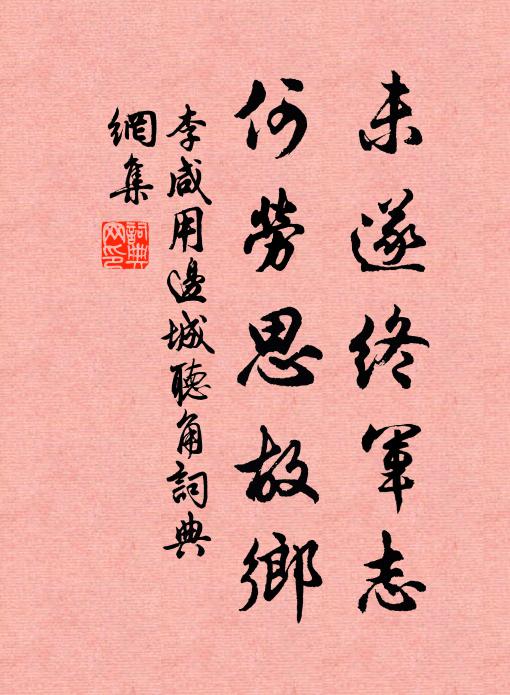 未遂終軍志
何勞思故鄉
李咸用邊城聽角詞典
網集
詞典
网印